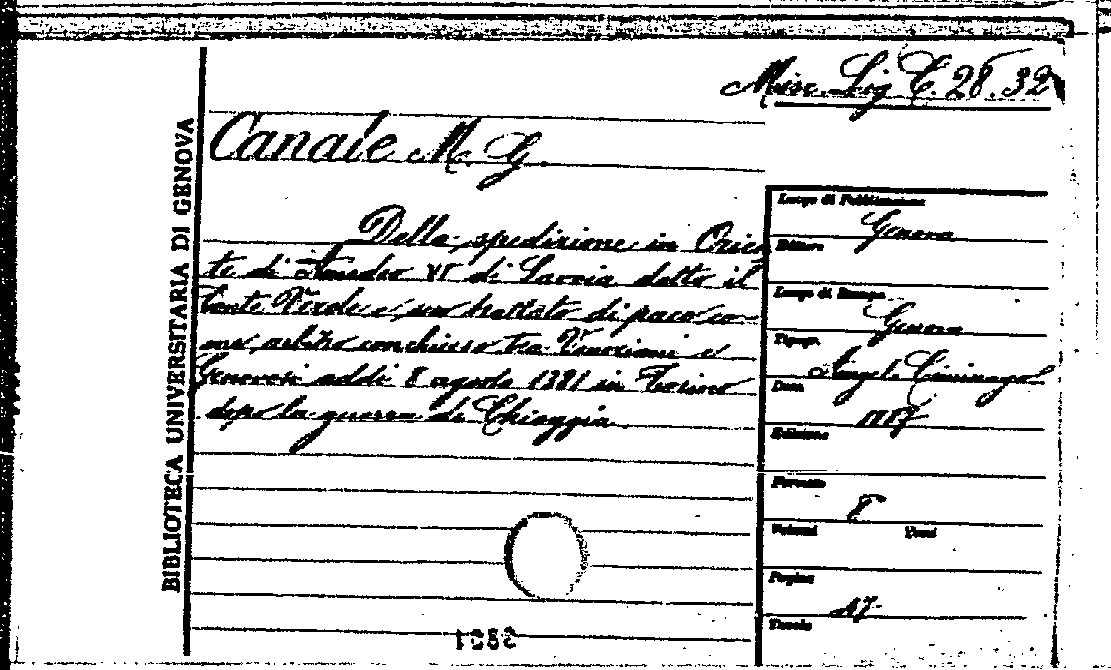 Misc. Lig C. 28. 32
BIBLIOTECA UNIVERSITARIA DI GENOVA
Canale M. G.
Della spedizione in Orien
te di Amedeo VI di Savoia detto il
Conte Verde e sul trattato di pace co
me arbitro conchiuso tra Veneziani e
Genovesi addì 8 agosto 1381 in Torino
dopo la guerra di Chioggia
Luogo di Pubblicazione
Genova
Editore
Luogo di Stampa
Genova
Tipogr.
Angel. Ciminago
Data
1887
Edizione
Formato
8
Volumi Tomi
Pagine
17
Tavole